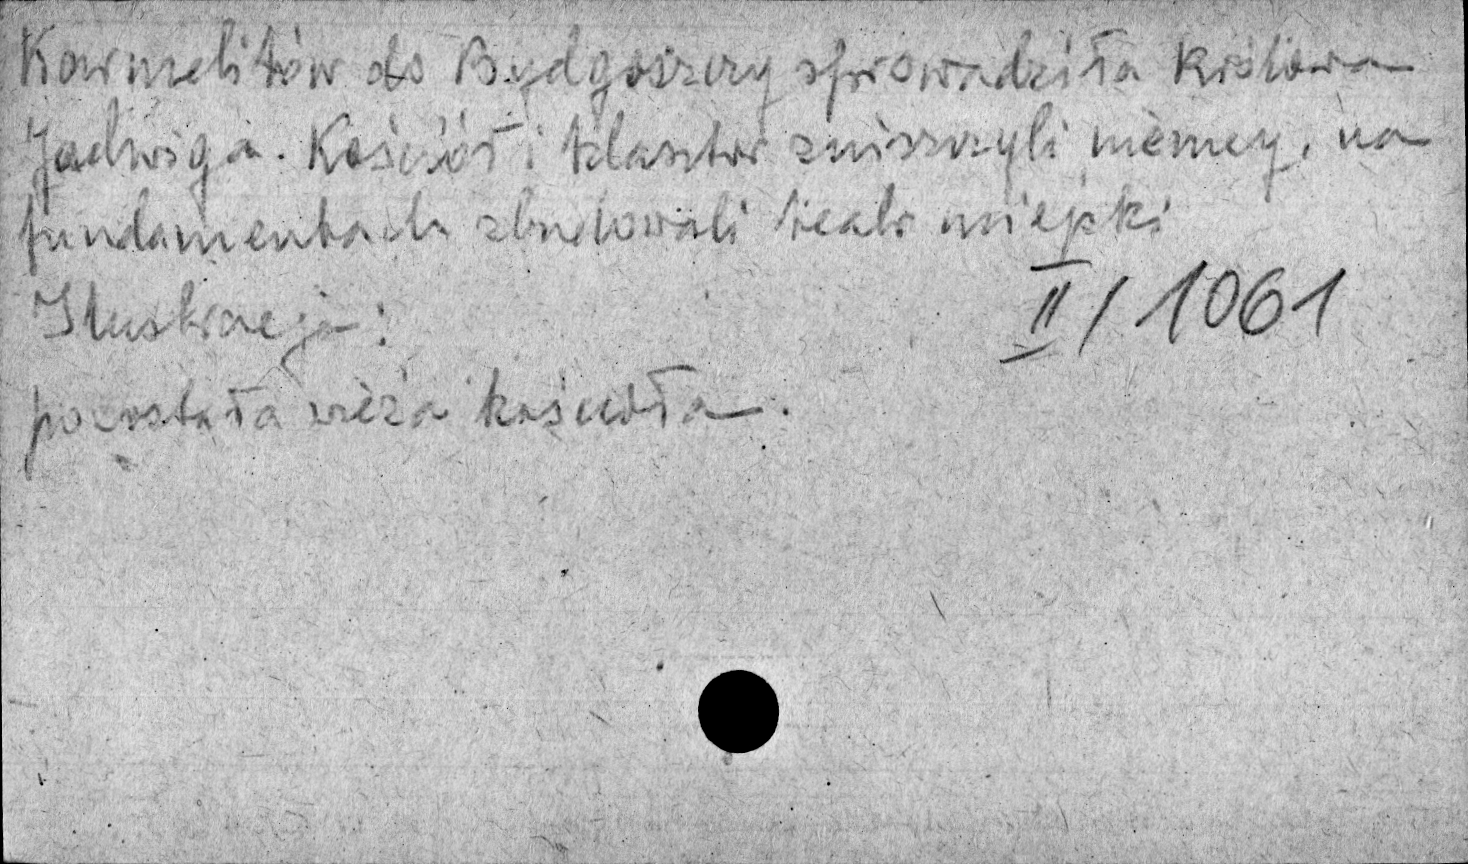 Karmelitów do Bydgoszczy sprowadziła królowa
Jadwiga. Kościół i klasztor zniszczyli niemcy, na
fundamentach zbudowali teatr miejski
Ilustracja:
II/1061
pozostała wieża kościoła.